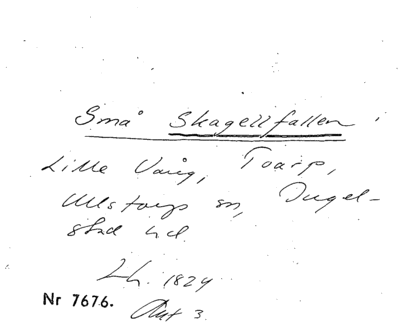 Små Skagellfallen
Lille Vång, Toarp,
Ullstorps sn, Ingel-
stad hd.
Lh. 1824
Nr 7676. Akt 3.